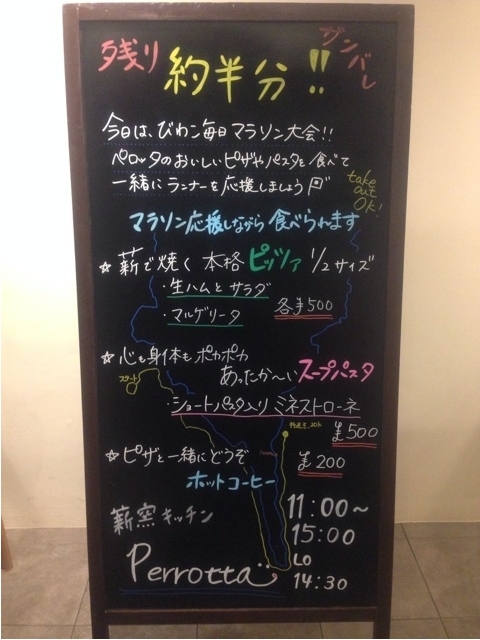 残り 約半分!! ガンバレ
今日は、びわこ毎日マラソン大会!!
ペロッタのおいしいピザやパスタを食べて
一緒にランナーを応援しましょう
take out OK!
マラソン応援しながら食べられます
☆薪で焼く本格ピッツァ 1/2サイズ
・生ハムとサラダ
・マルゲリータ 各¥500
☆心も身体もポカポカ
あったか〜いスープパスタ
スタート
・ショートパスタ入りミネストローネ
¥500
☆ピザと一緒にどうぞ ¥200
ホットコーヒー
薪窯キッチン
Perrotta
11:00〜
15:00
LO
14:30